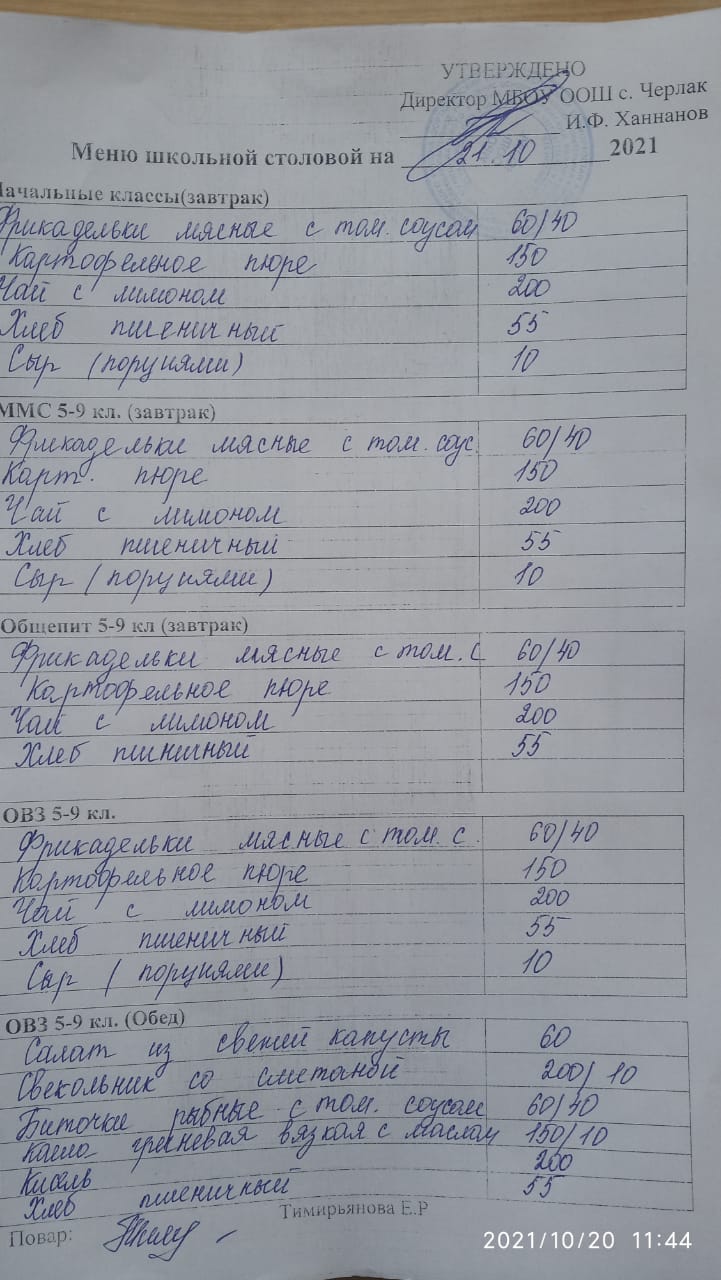 УТВЕРЖДЕНО
Директор МБОУ ООШ с. Черлак
И.Ф. Ханнанов
Меню школьной столовой на 21.10 2021
Начальные классы(завтрак)
Фрикадельки мясные с том. соусом 60/40
Картофельное пюре 150
Чай с лимоном 200
Хлеб пшеничный 55
Сыр (порциями) 10
ММС 5-9 кл. (завтрак)
Фрикадельки мясные с том. соус. 60/40
Карт. пюре 150
Чай с лимоном 200
Хлеб пшеничный 55
Сыр (порциями) 10
Общепит 5-9 кл (завтрак)
Фрикадельки мясные с том. с 60/40
Картофельное пюре 150
Чай с лимоном 200
Хлеб пшеничный 55
ОВЗ 5-9 кл.
Фрикадельки мясные с том. с. 60/40
Картофельное пюре 150
Чай с лимоном 200
Хлеб пшеничный 55
Сыр (порциями) 10
ОВЗ 5-9 кл. (Обед)
Салат из свежей капусты 60
Свекольник со сметаной 200/10
Биточки рыбные с том. соусом 60/40
Каша гречневая вязкая с маслом 150/10
Кисель 200
Хлеб пшеничный 55
Повар: Тимирьянова Е.Р
2021/10/20 11:44